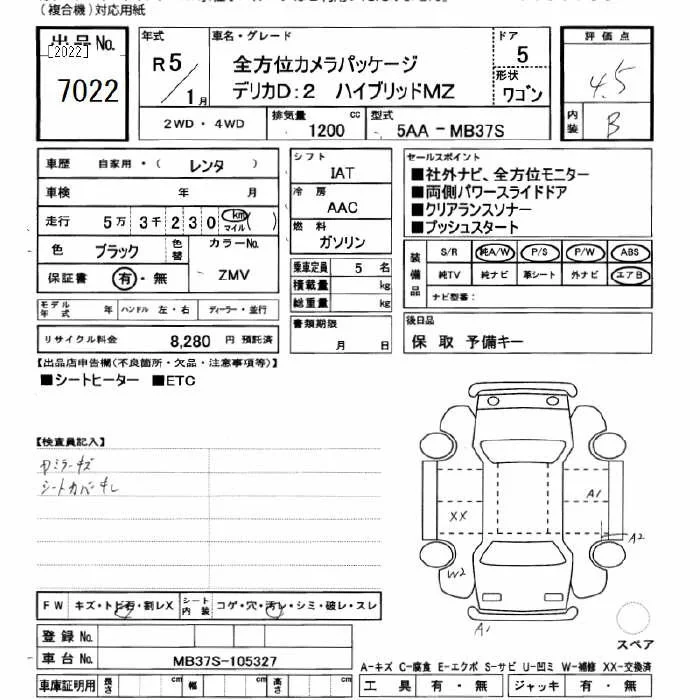 (複合機)対応用紙
出品No.
[2022]
7022
年式
R5/1月
車名・グレード
全方位カメラパッケージ
デリカD:2 ハイブリッドMZ
ドア
5
形状
ワゴン
評価点
4.5
内装
B
2WD・4WD
排気量
1200 cc
型式
5AA-MB37S
車歴 自家用・( レンタ )
車検 年 月
走行 5万3千230 km マイル ( )
色 ブラック 色替
カラーNo.
ZMV
保証書 有・無
モデル年式 年 ハンドル 左・右 ディーラー・並行
リサイクル料金 8,280 円 預託済
シフト
IAT
冷房
AAC
燃料
ガソリン
乗車定員 5 名
積載量 kg
総重量 kg
書類期限
月 日
セールスポイント
■社外ナビ、全方位モニター
■両側パワースライドドア
■クリアランスソナー
■プッシュスタート
装備品
S/R 純A/W P/S P/W ABS
純TV 純ナビ 革シート 外ナビ エアB
ナビ型番:
後日品
保 取 予備キー
【出品店申告欄(不良箇所・欠品・注意事項等)】
■シートヒーター ■ETC
【検査員記入】
ミラーキズ
シートカバー
XX
A1
A2
W2
A1
スペア
FW キズ・トビ石・割レX シート内装 コゲ・穴・汚レ・シミ・破レ・スレ
登録No.
車台No. MB37S-105327
A-キズ C-腐食 E-エクボ S-サビ U-凹ミ W-補修 XX-交換済
車庫証明用 長さ cm 幅 cm 高さ cm
工具 有・無 ジャッキ 有・無